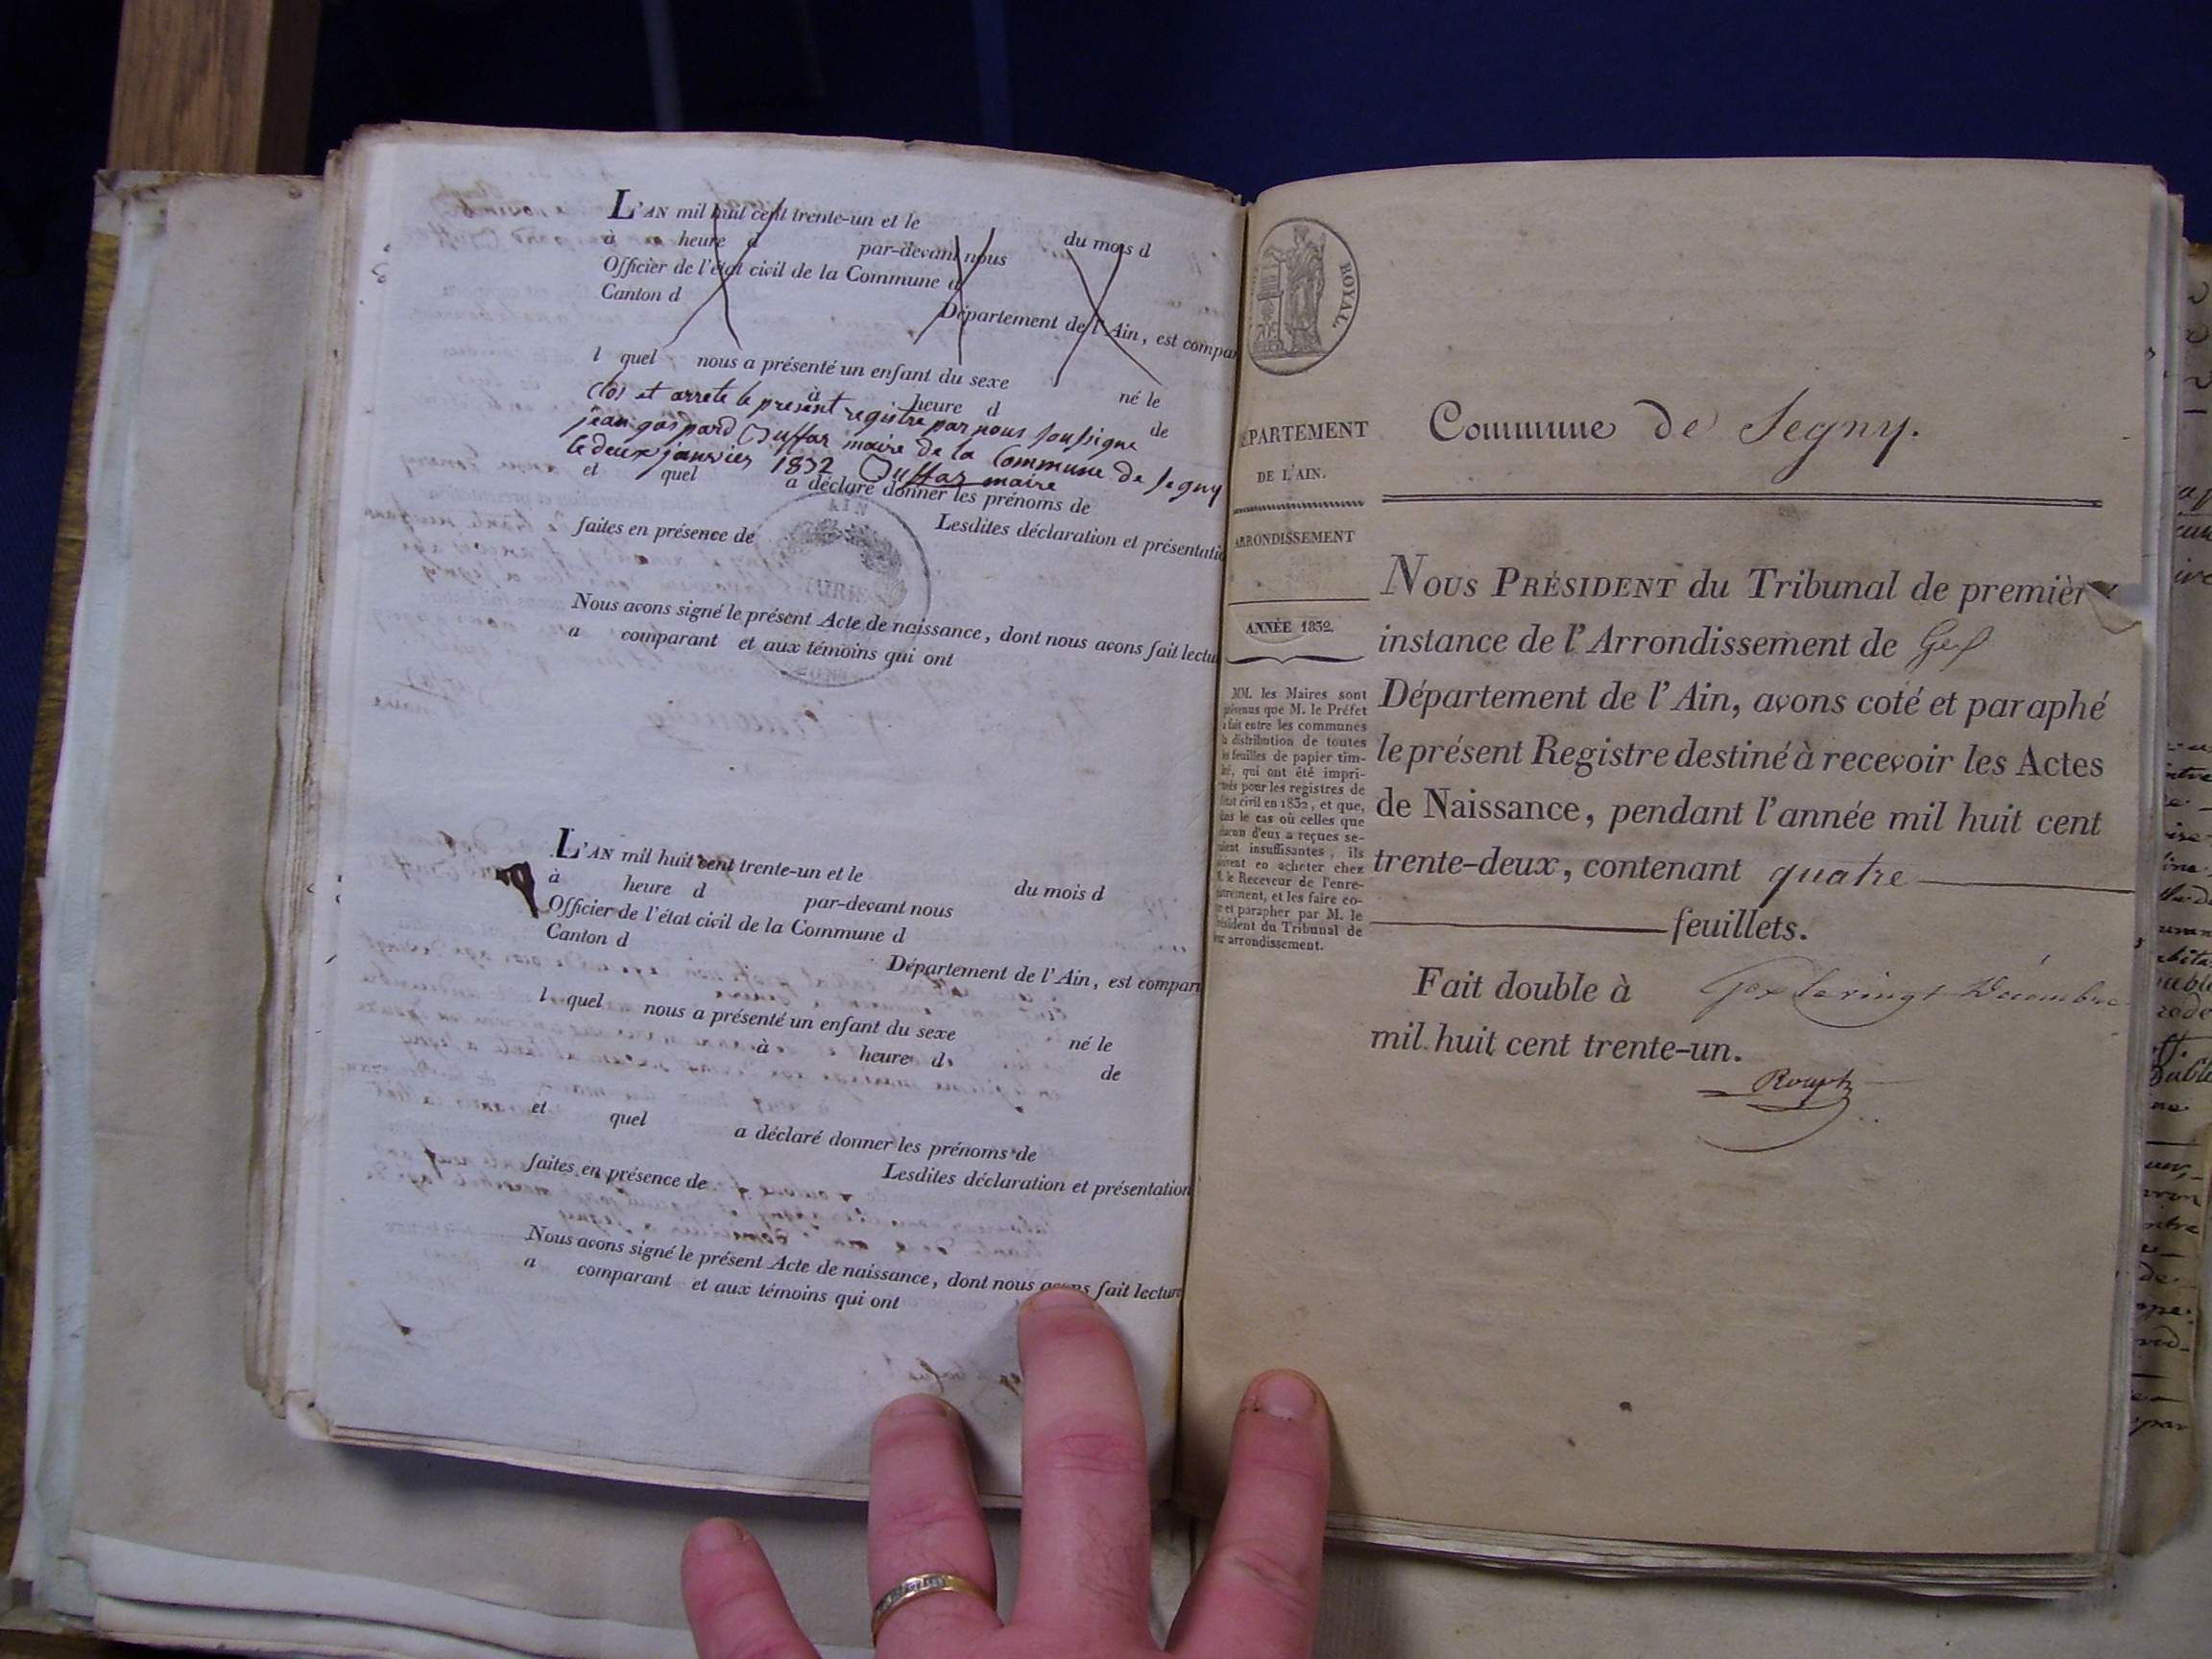 L'AN mil huit cent trente-un et le
du mois d
à heure d par-devant nous
Officier de l'état civil de la Commune d
Canton d
Département de l'Ain, est compar
l quel nous a présenté un enfant du sexe
né le
à heure d
de
clos et arrete le present registre par nous soussigne
jean gaspard Duffar maire de la Commune de Segny
le deux janvier 1832 Duffar maire
et quel a déclaré donner les prénoms de
Lesdites déclaration et présentatio
faites en présence de
AIN
Nous avons signé le présent Acte de naissance, dont nous avons fait lectu
a comparant et aux témoins qui ont
L'AN mil huit cent trente-un et le
du mois d
à heure d par-devant nous
Officier de l'état civil de la Commune d
Canton d
Département de l'Ain, est compar
l quel nous a présenté un enfant du sexe
né le
à heure d
de
et quel a déclaré donner les prénoms de
Lesdites déclaration et présentation
faites en présence de
Nous avons signé le présent Acte de naissance, dont nous avons fait lecture
a comparant et aux témoins qui ont
ROYAL.
ÉPARTEMENT
DE L'AIN.
ARRONDISSEMENT
ANNÉE 1832.
MM. les Maires sont
prévenus que M. le Préfet
a fait entre les communes
la distribution de toutes
les feuilles de papier tim-
bré, qui ont été impri-
mées pour les registres de
l'état civil en 1832, et que,
dans le cas où celles que
chacun d'eux a reçues se-
raient insuffisantes, ils
doivent en acheter chez
M. le Receveur de l'enre-
gistrement, et les faire co-
ter et parapher par M. le
Président du Tribunal de
leur arrondissement.
Commune de Segny.
NOUS PRÉSIDENT du Tribunal de premièr
instance de l'Arrondissement de Gex
Département de l'Ain, avons coté et paraphé
le présent Registre destiné à recevoir les Actes
de Naissance, pendant l'année mil huit cent
trente-deux, contenant quatre
feuillets.
Fait double à Gex le vingt Décembre
mil huit cent trente-un.